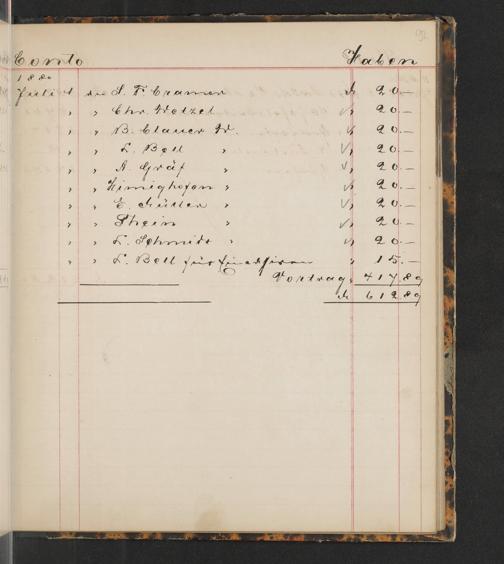 92
Conto Haben
1880
Juli 1 an S. F. Cramer ₰ 20.—
" " Chr. Wetzel 20.—
" " B. Clauer W. 20.—
" " L. Boll " 20.—
" " A. Gräf " 20.—
" " Himighofen " 20.—
" " E. Müller " 20.—
" " Rhein " 20.—
" " L. Schmidt " 20.—
" " L. Boll für 15.—
Vortrag 417.89
612.89